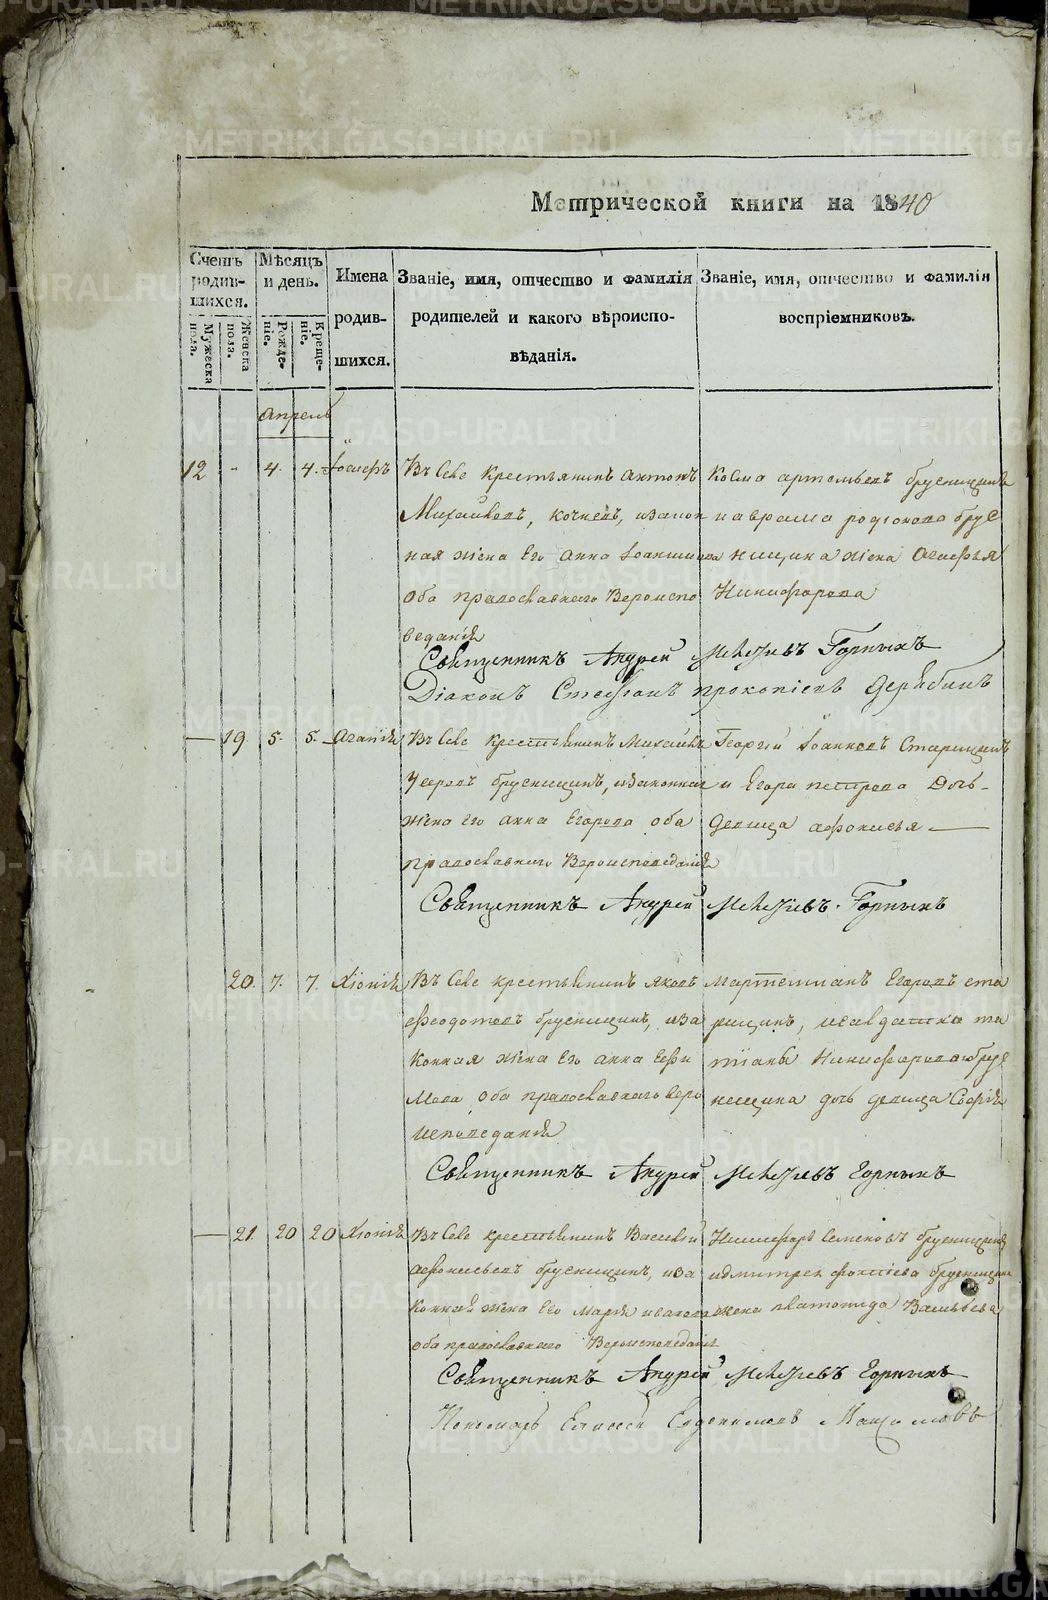 METRIKI.GASO-URAL.RU
Метрической книги на 1840
Счетъ родив-шихся.
Мужеска пола.
Женска пола.
Мѣсяцъ и день.
Рожде-ніе.
Креще-ніе.
Имена родив-шихся.
Званіе, имя, отчество и фамилія
родителей и какого вѣроиспо-
вѣданія.
Званіе, имя, отчество и фамилія
воспріемниковъ.
Апрель
12 - 4. 4. Іосифъ
Въ Селе крестьянинъ Антонъ
Михайловъ, законная
жена Его Анна
Оба православнаго Вероиспо
веданія
Косма Брусницинъ
и Аврама родіонова Брус
ницина жена Агафья
Никифорова
Священникъ Андрей Горныхъ
Діаконъ Стефанъ Прокопіевъ Дерябинъ
— 19. 5. 5. Агапія
Въ Селе крестьянинъ Михайло
Брусницинъ, изаконная
жена Его Анна Егорова оба
православнаго Вероисповеданія
Георгій Іоанновъ Старицинъ
и Егора петрова Дочь
девица афонасья —
Священникъ Андрей Горныхъ
20. 7. 7. Хіонія
Въ Селе крестьянинъ Яковъ
Феодотовъ брусницинъ, иза
конная жена Его Анна Ефи
мова оба православнаго веро
исповеданія
мартеміанъ Егоровъ ста
рицинъ,
Никифорова брус
ницина дочь девица Софія
Священникъ Андрей Горныхъ
— 21. 20 20 Хіонія
Въ Селе крестьянинъ Василей
афонасьевъ брусницинъ, иза
конная жена Его Марія
оба православнаго Вероисповеданія
Никифоръ Семеновъ брусницинъ
идмитрея брусницина
жена Васильева
Священникъ Андрей Горныхъ
Пономарь Елисей